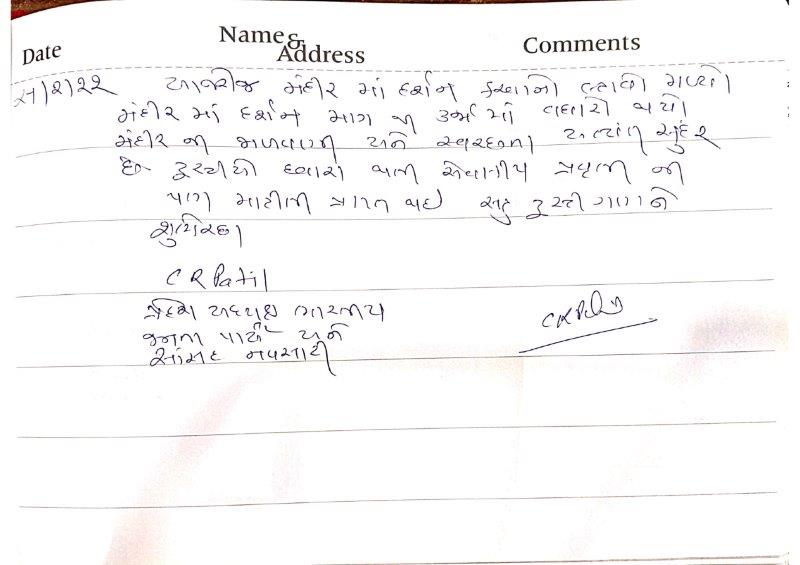 Date
Name & Address
Comments
આજરોજ મંદીર માં દર્શન કરવાનો લ્હાવો મળ્યો
મંદીર માં દર્શન માત્ર થી ઉર્જા માં વધારો થયો
મંદીર ની જાળવણી અને સ્વચ્છતા અત્યંત સુંદર
છે ટ્રસ્ટીઓ દ્વારા થતી સેવાનીય પ્રવૃત્તી ની
પણ માહીતી પ્રાપ્ત થઇ સહુ ટ્રસ્ટી ગણને
શુભેચ્છા
C R Patil
પ્રદેશ અધ્યક્ષ ભારતીય
જનતા પાર્ટી અને
સાંસદ નવસારી
CRPatil